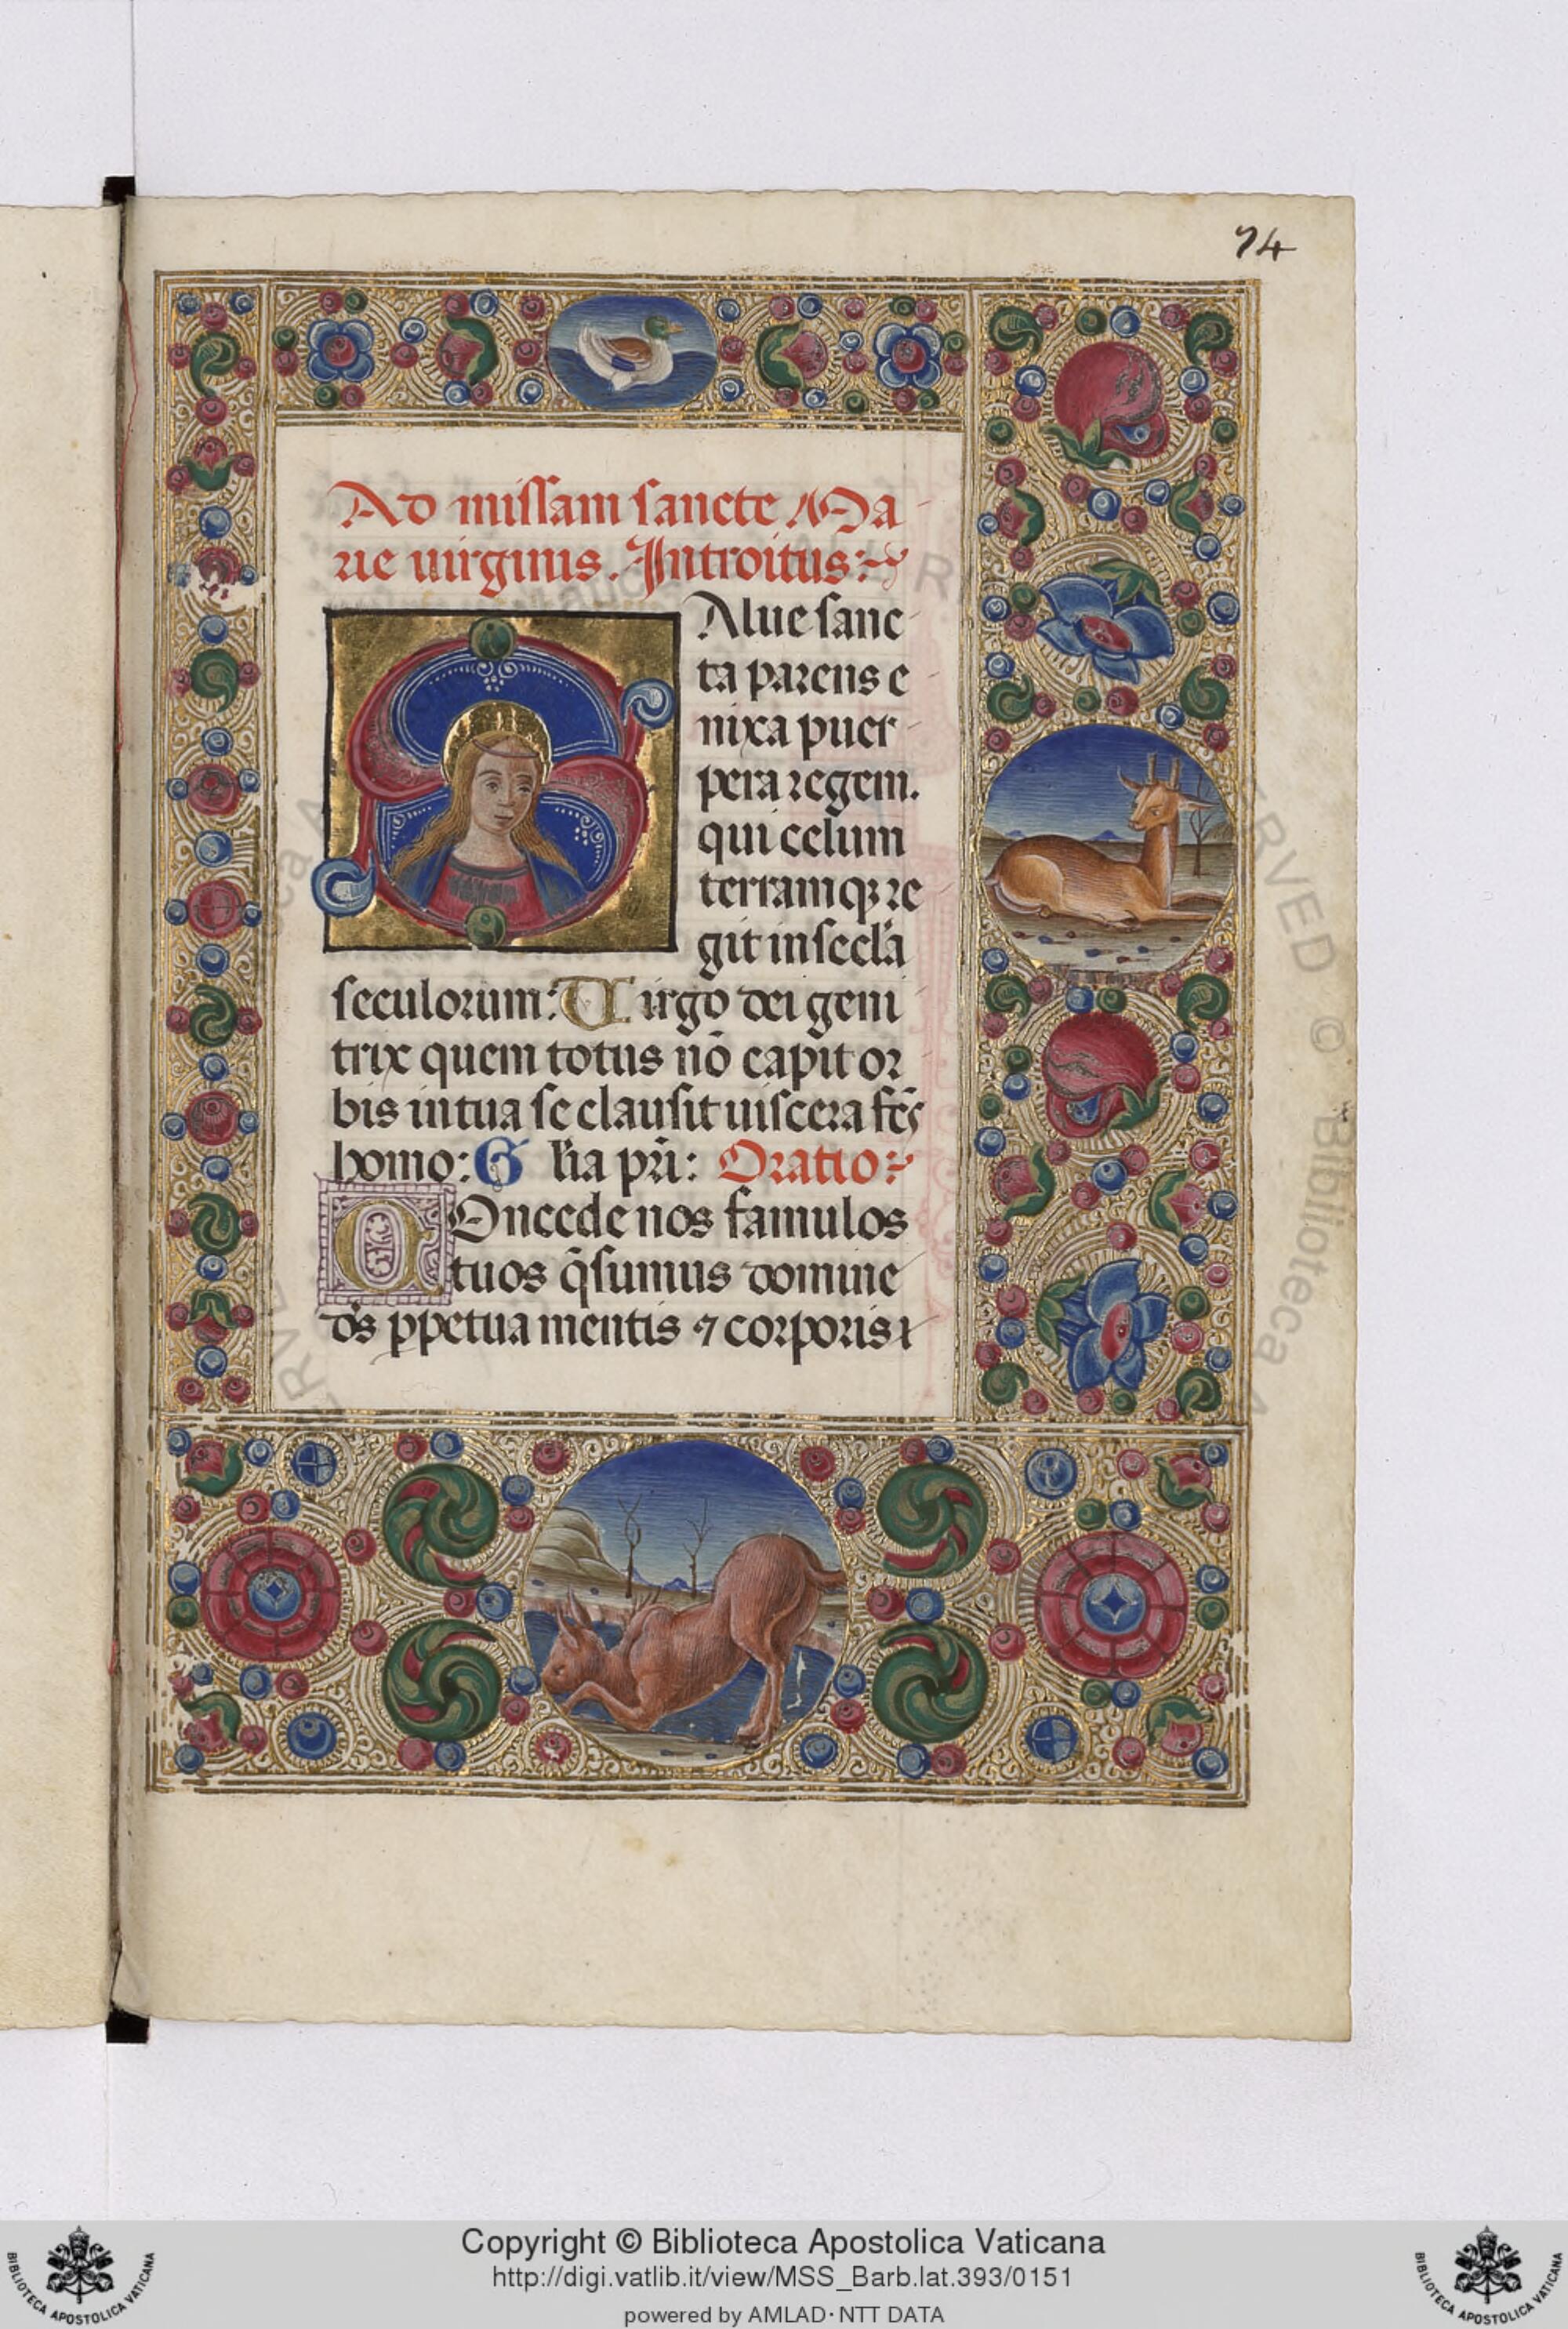 74
Ad missam sancte Ma
rie uirginis. Introitus:
SAlue sanc
ta parens e
nixa puer
pera regem.
qui celum
terramqꝫ re
git in secl'a
seculorum: Virgo dei geni
trix quem totus nō capit or
bis in tua se clausit uiscera fc̄s
homo: Gl'ia pr̄i: Oratio:
COncede nos famulos
tuos q̄sumus domine
ds̄ ꝑpetua mentis ⁊ corporis
Copyright © Biblioteca Apostolica Vaticana
http://digi.vatlib.it/view/MSS_Barb.lat.393/0151
powered by AMLAD·NTT DATA
BIBLIOTECA APOSTOLICA VATICANA
BIBLIOTECA APOSTOLICA VATICANA